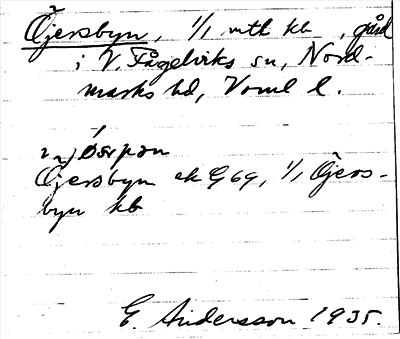 Öjersbyn, 1/1 mtl kb, gård
i V. Fågelviks sn, Nord-
marks hd, Värml l.
Öjersbyn ek G 69, 1/1 Öjers-
byn kb
E. Andersson 1935.